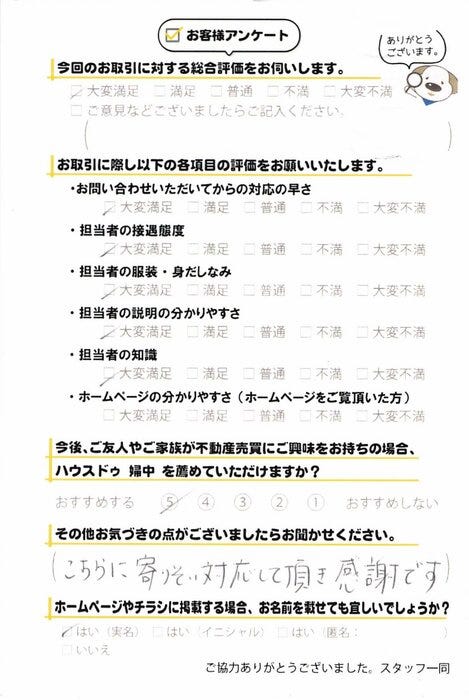 お客様アンケート
ありがとう
ございます。
今回のお取引に対する総合評価をお伺いします。
大変満足 満足 普通 不満 大変不満
ご意見などございましたらご記入ください。
お取引に際し以下の各項目の評価をお願いいたします。
・お問い合わせいただいてからの対応の早さ
大変満足 満足 普通 不満 大変不満
・担当者の接遇態度
大変満足 満足 普通 不満 大変不満
・担当者の服装・身だしなみ
大変満足 満足 普通 不満 大変不満
・担当者の説明の分かりやすさ
大変満足 満足 普通 不満 大変不満
・担当者の知識
大変満足 満足 普通 不満 大変不満
・ホームページの分かりやすさ（ホームページをご覧頂いた方）
大変満足 満足 普通 不満 大変不満
今後、ご友人やご家族が不動産売買にご興味をお持ちの場合、
ハウスドゥ 婦中 を薦めていただけますか？
おすすめする ⑤ ④ ③ ② ① おすすめしない
その他お気づきの点がございましたらお聞かせください。
（こちらに寄りそい対応して頂き感謝です）
ホームページやチラシに掲載する場合、お名前を載せても宜しいでしょうか？
はい（実名） はい（イニシャル） はい（匿名： ）
いいえ
ご協力ありがとうございました。スタッフ一同